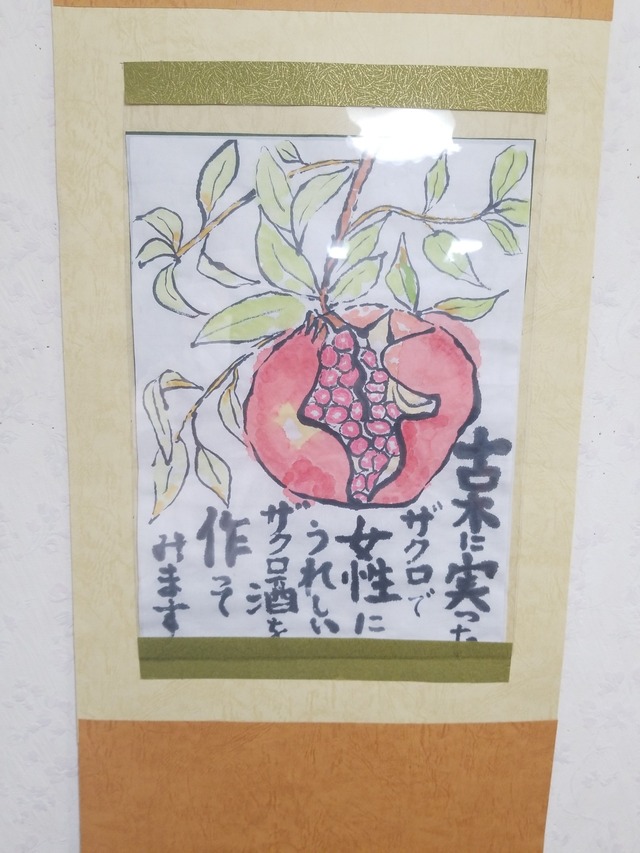 古木に実った
ザクロで
女性に
うれしい
ザクロ酒を
作って
みます